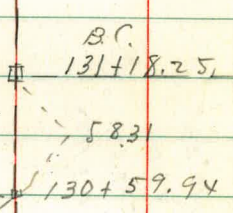 B.C.
131+18.25
58.31
130+59.94